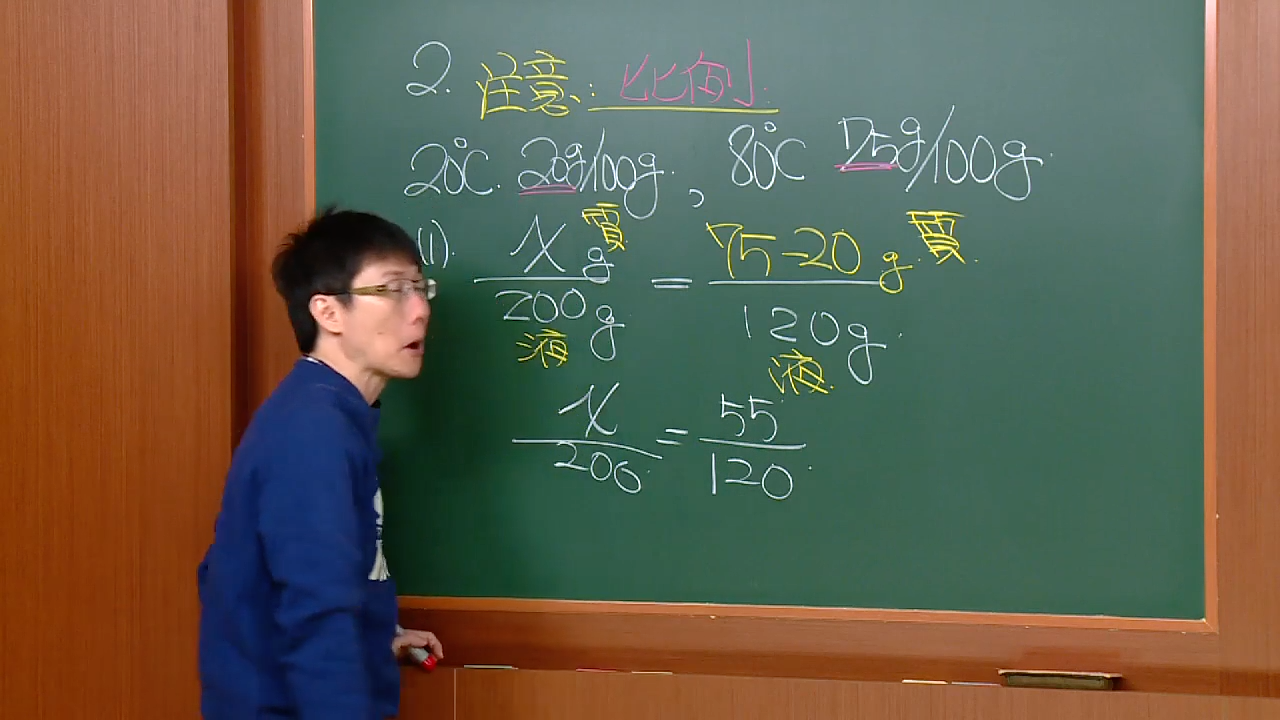 2. 注意: 比例
20°C. 20g/100g. , 80°C 75g/100g.
(1). x g 質 / 200g 液 = 75-20 g 質 / 120g 液
x / 200 = 55 / 120